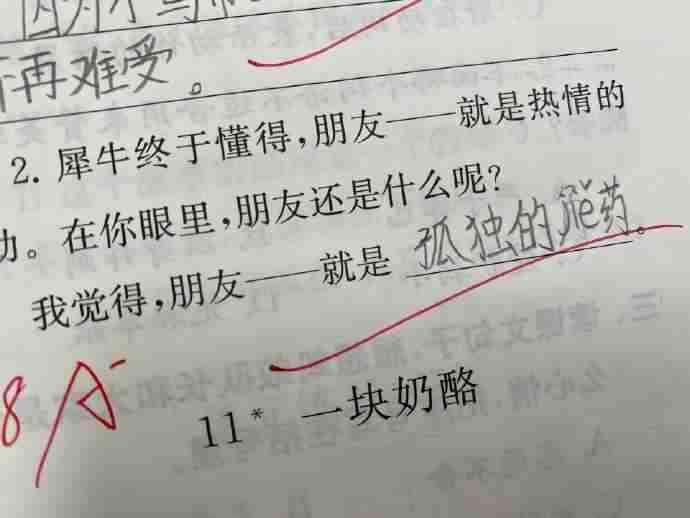 因为
再难受。
2. 犀牛终于懂得,朋友——就是热情的
。在你眼里,朋友还是什么呢?
我觉得,朋友——就是 孤独的jiě药。
8 A-
11* 一块奶酪